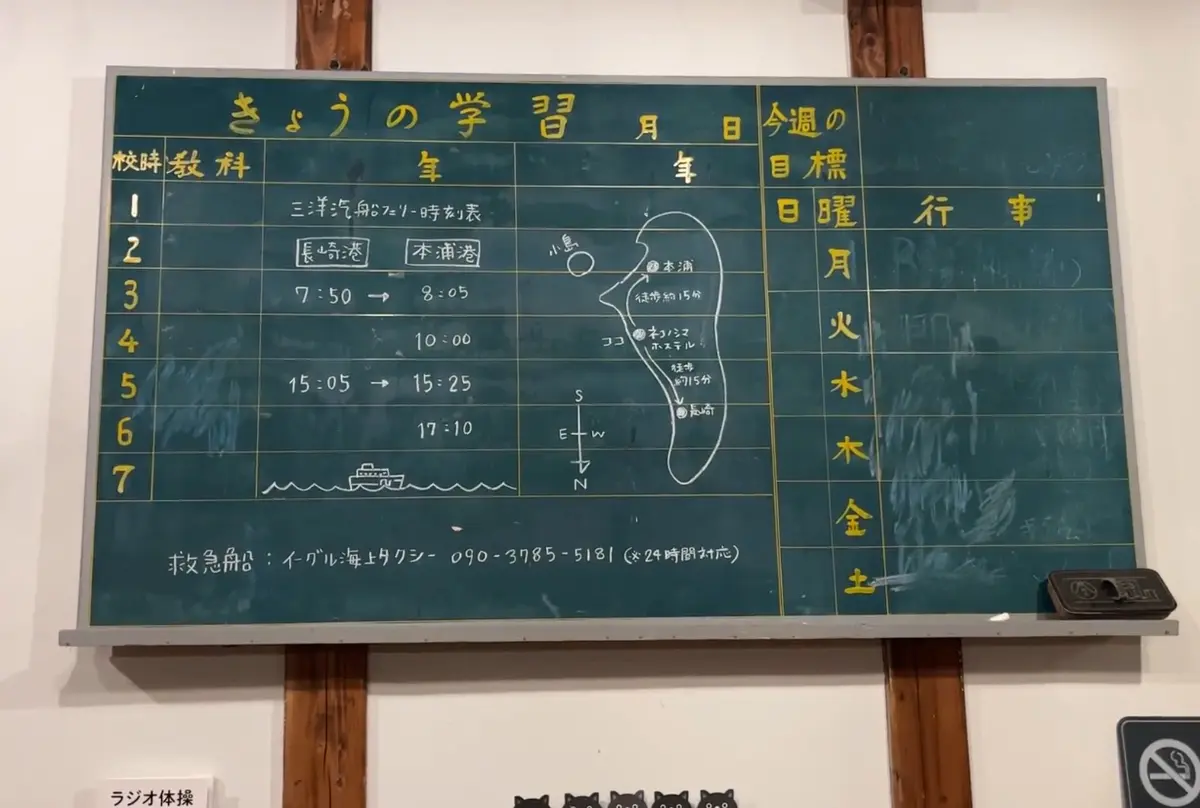 きょうの学習 月 日
今週の
目標
校時 教科 年 年
日 曜 行事
1 三洋汽船フェリー時刻表
2 長崎港 本浦港
3 7:50 → 8:05
4 10:00
5 15:05 → 15:25
6 17:10
7
小島
本浦
徒歩約15分
ココ ネコノシマ
ホステル
徒歩
約15分
長崎
S
E W
N
月
火
水
木
金
土
救急船:イーグル海上タクシー 090-3785-5181 (※24時間対応)
ラジオ体操